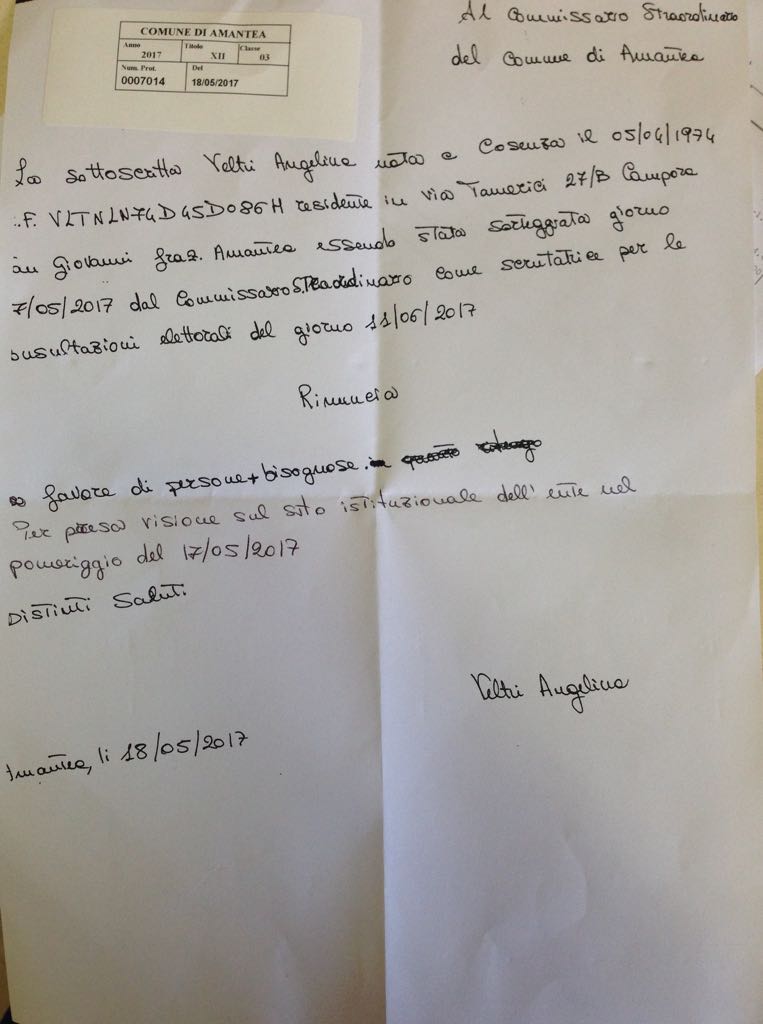 COMUNE DI AMANTEA
Anno Titolo Classe
2017 XII 03
Num. Prot. Del
0007014 18/05/2017
Al Commissario Straordinario
del Comune di Amantea
La sottoscritta Veltri Angelina nata a Cosenza il 05/04/1974
.F. VLTNLN74D45D086H residente in via Tamerici 27/B Campora
an Giovanni fraz. Amantea essendo stata sorteggiata giorno
7/05/2017 dal Commissario Straordinario come scrutatrice per le
onsultazioni elettorali del giorno 11/06/2017
Rinuncia
a favore di persone + bisognose
Per presa visione sul sito istituzionale dell'ente nel
pomeriggio del 17/05/2017
Distinti Saluti
Veltri Angelina
Amantea, li 18/05/2017